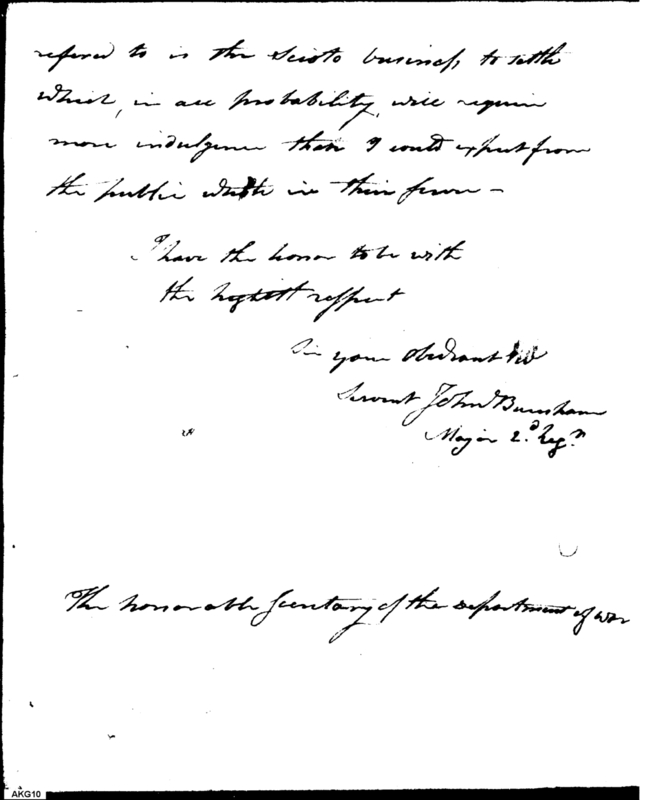 refered to is the Scioto business, to settle
which, in all probability, will require
more indulgence than I could expect from
the public whilst in their service –
I have the honor to be with
the highest respect
Sir your Obediant
Servent John Burnham
Major 2.d Reg.t
The honorable Secretary of the department of war
AKG10